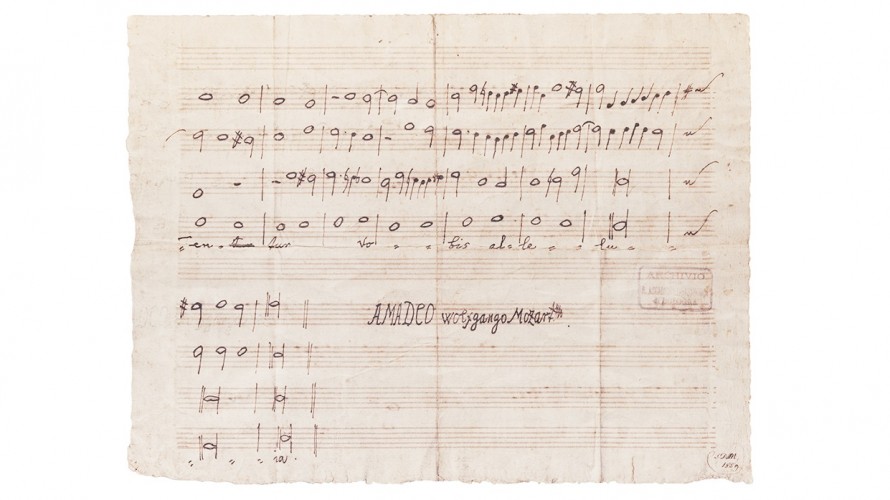 en tur vo bis al le lu
AMADEO Wolfgango Mozart
ARCHIVIO
ia